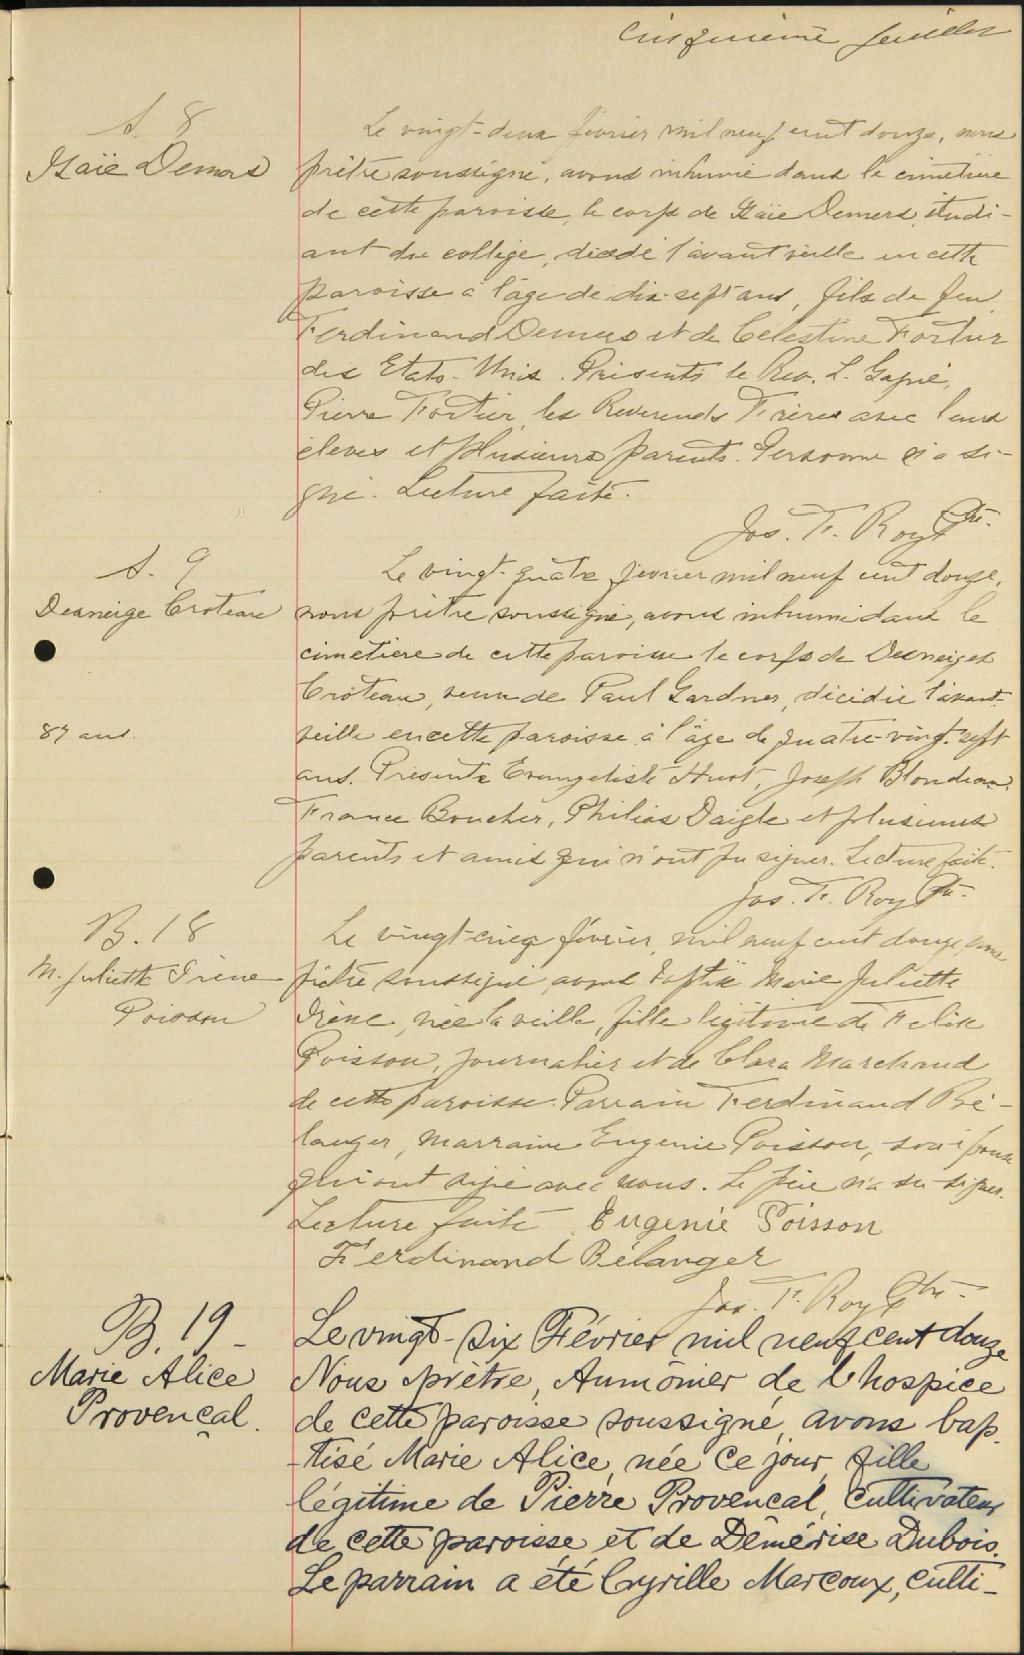 Cinquième feuillet
S. 8
Isaïe Demers
Le vingt-deux février mil neuf cent douze, nous
prêtre soussigné, avons inhumé dans le cimetière
de cette paroisse, le corps de Isaïe Demers, étudi-
ant du collège, décédé l'avant veille en cette
paroisse à l'âge de dix-sept ans, fils de feu
Ferdinand Demers et de Celestine Fortier
des Etats-Unis. Présents le Rev. L.
Pierre Fortier, les Reverends Frères avec leurs
élèves et plusieurs parents. Personne n'a si-
gné. Lecture faite.
Jos. F. Roy Ptre.
S. 9
Desneige Croteau
87 ans.
Le vingt-quatre février mil neuf cent douze,
nous prêtre soussigné, avons inhumé dans le
cimetière de cette paroisse le corps de Desneiges
Croteau, veuve de Paul Gardner, décédée l'avant-
veille en cette paroisse à l'âge de quatre-vingt-sept
ans. Présents Evangeliste Huot, Joseph Blondeau,
France Boucher, Philias Daigle et plusieurs
parents et amis qui n'ont pu signer. Lecture faite.
Jos. F. Roy Ptre.
B. 18
M. Juliette Irène
Poisson
Le vingt-cinq février mil neuf cent douze, nous
prêtre soussigné avons baptisé Marie Juliette
Irène, née la veille, fille légitime de Félix
Poisson, journalier et de Clara Marchand
de cette paroisse. Parrain Ferdinand Bé-
langer, marraine Eugenie Poisson, son épouse
qui ont signé avec nous. Le père n'a su signer.
Lecture faite Eugenie Poisson
Ferdinand Bélanger
Jos. F. Roy Ptre -
B. 19 -
Marie Alice
Provençal.
Le vingt-six Février mil neuf cent douze
Nous prêtre, Aumônier de l'hospice
de cette paroisse soussigné, avons bap-
-tisé Marie Alice, née ce jour, fille
légitime de Pierre Provencal, cultivateur
de cette paroisse et de Démérise Dubois.
Le parrain a été Cyrille Marcoux, culti-